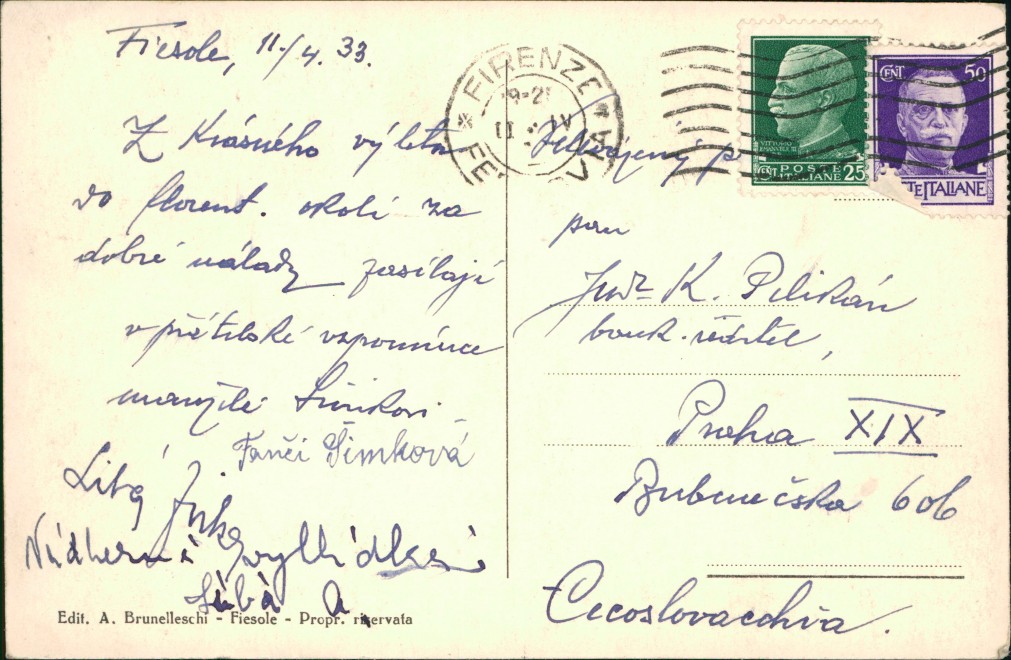 Fiesole, 11./4. 33.
Z krásného výletu
do florent. okolí za
dobré nálady zasílají
v přátelské vzpomínce
manželé Šimkovi
Fanči Šimková
Nádherné
Edit. A. Brunelleschi - Fiesole - Propr. riservata
FIRENZE
FE
9-2
II IV
VITTORIO EMANUELE III
POSTE
CENT ITALIANE 25
CENT 50
TE ITALIANE
pan
JUDr K. Pelikán
bank. ředitel,
Praha XIX
Bubenečská 606
Cecoslovacchia.